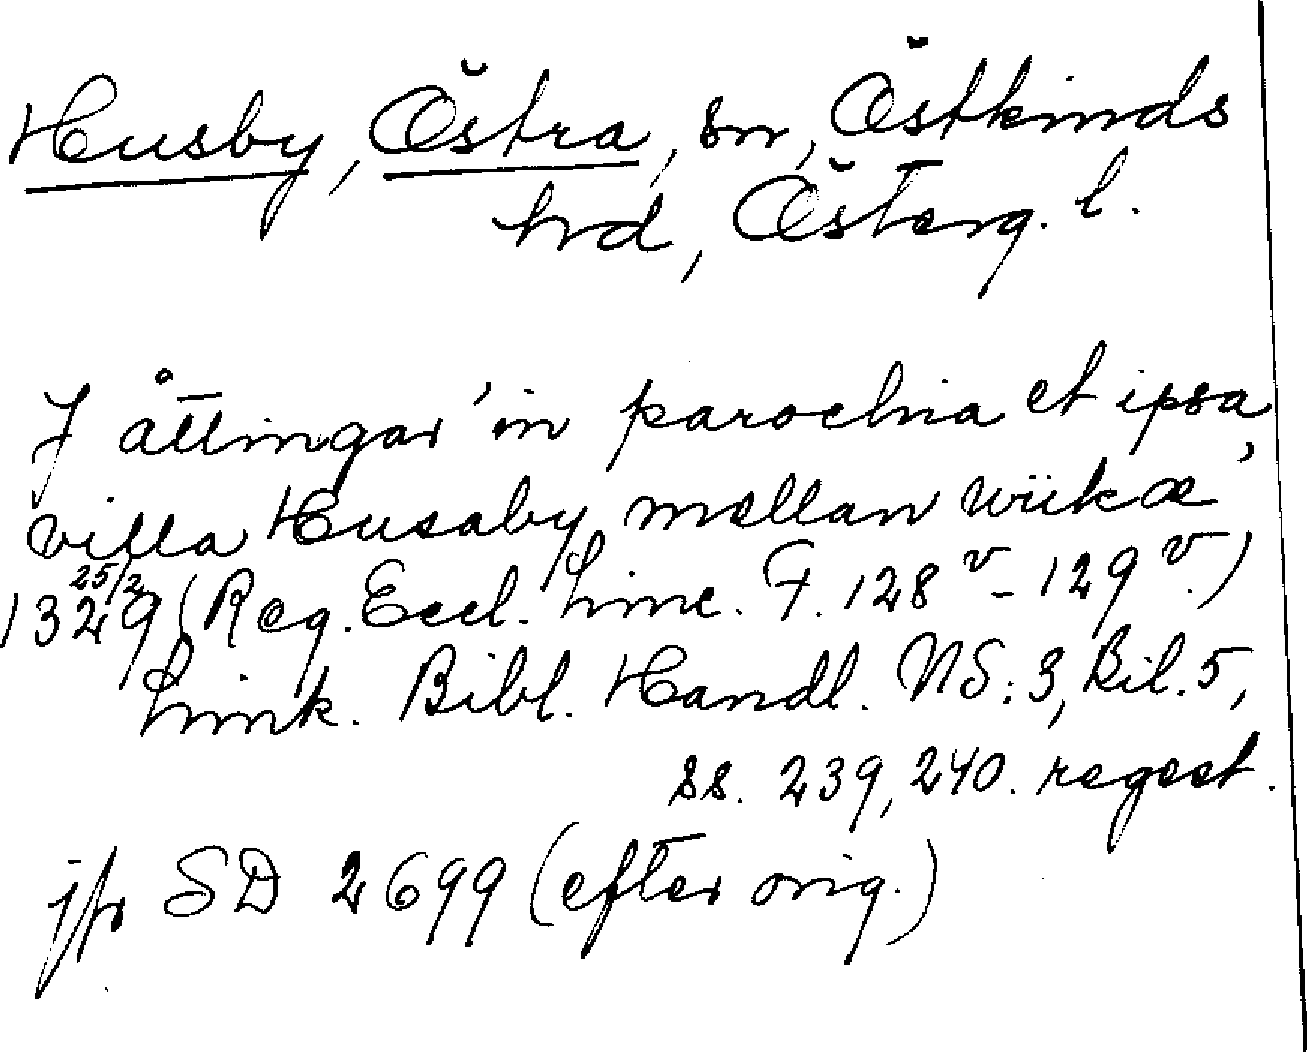 Husby, Östra, sn, Östkinds
hrd, Österg. l.
7 åttingar 'in parochia et ipsa
villa Husaby mellan wiikæ',
1329 25/2 (Reg. Eccl. Linc. F. 128 v - 129 v.)
Link. Bibl. Handl. NS: 3, Bil. 5,
ss. 239, 240. regest.
jfr SD 2699 (efter orig.)